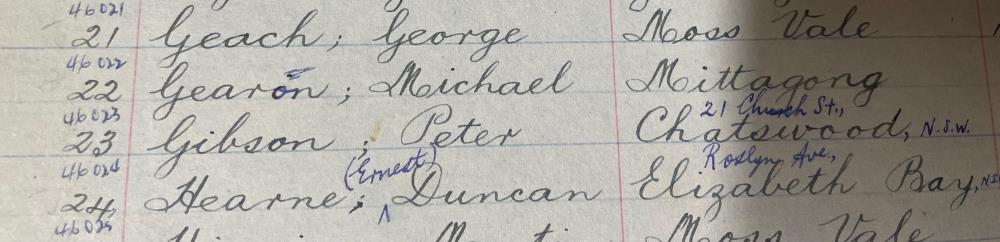 46021
21 Geach; George Moss Vale
46022
22 Gearon; Michael Mittagong
46023 21 Church St.,
23 Gibson; Peter Chatswood, N.S.W.
46024 (Ernest) Roslyn Ave.,
24 Hearne; ^ Duncan Elizabeth Bay, NS
46025
Moss Vale